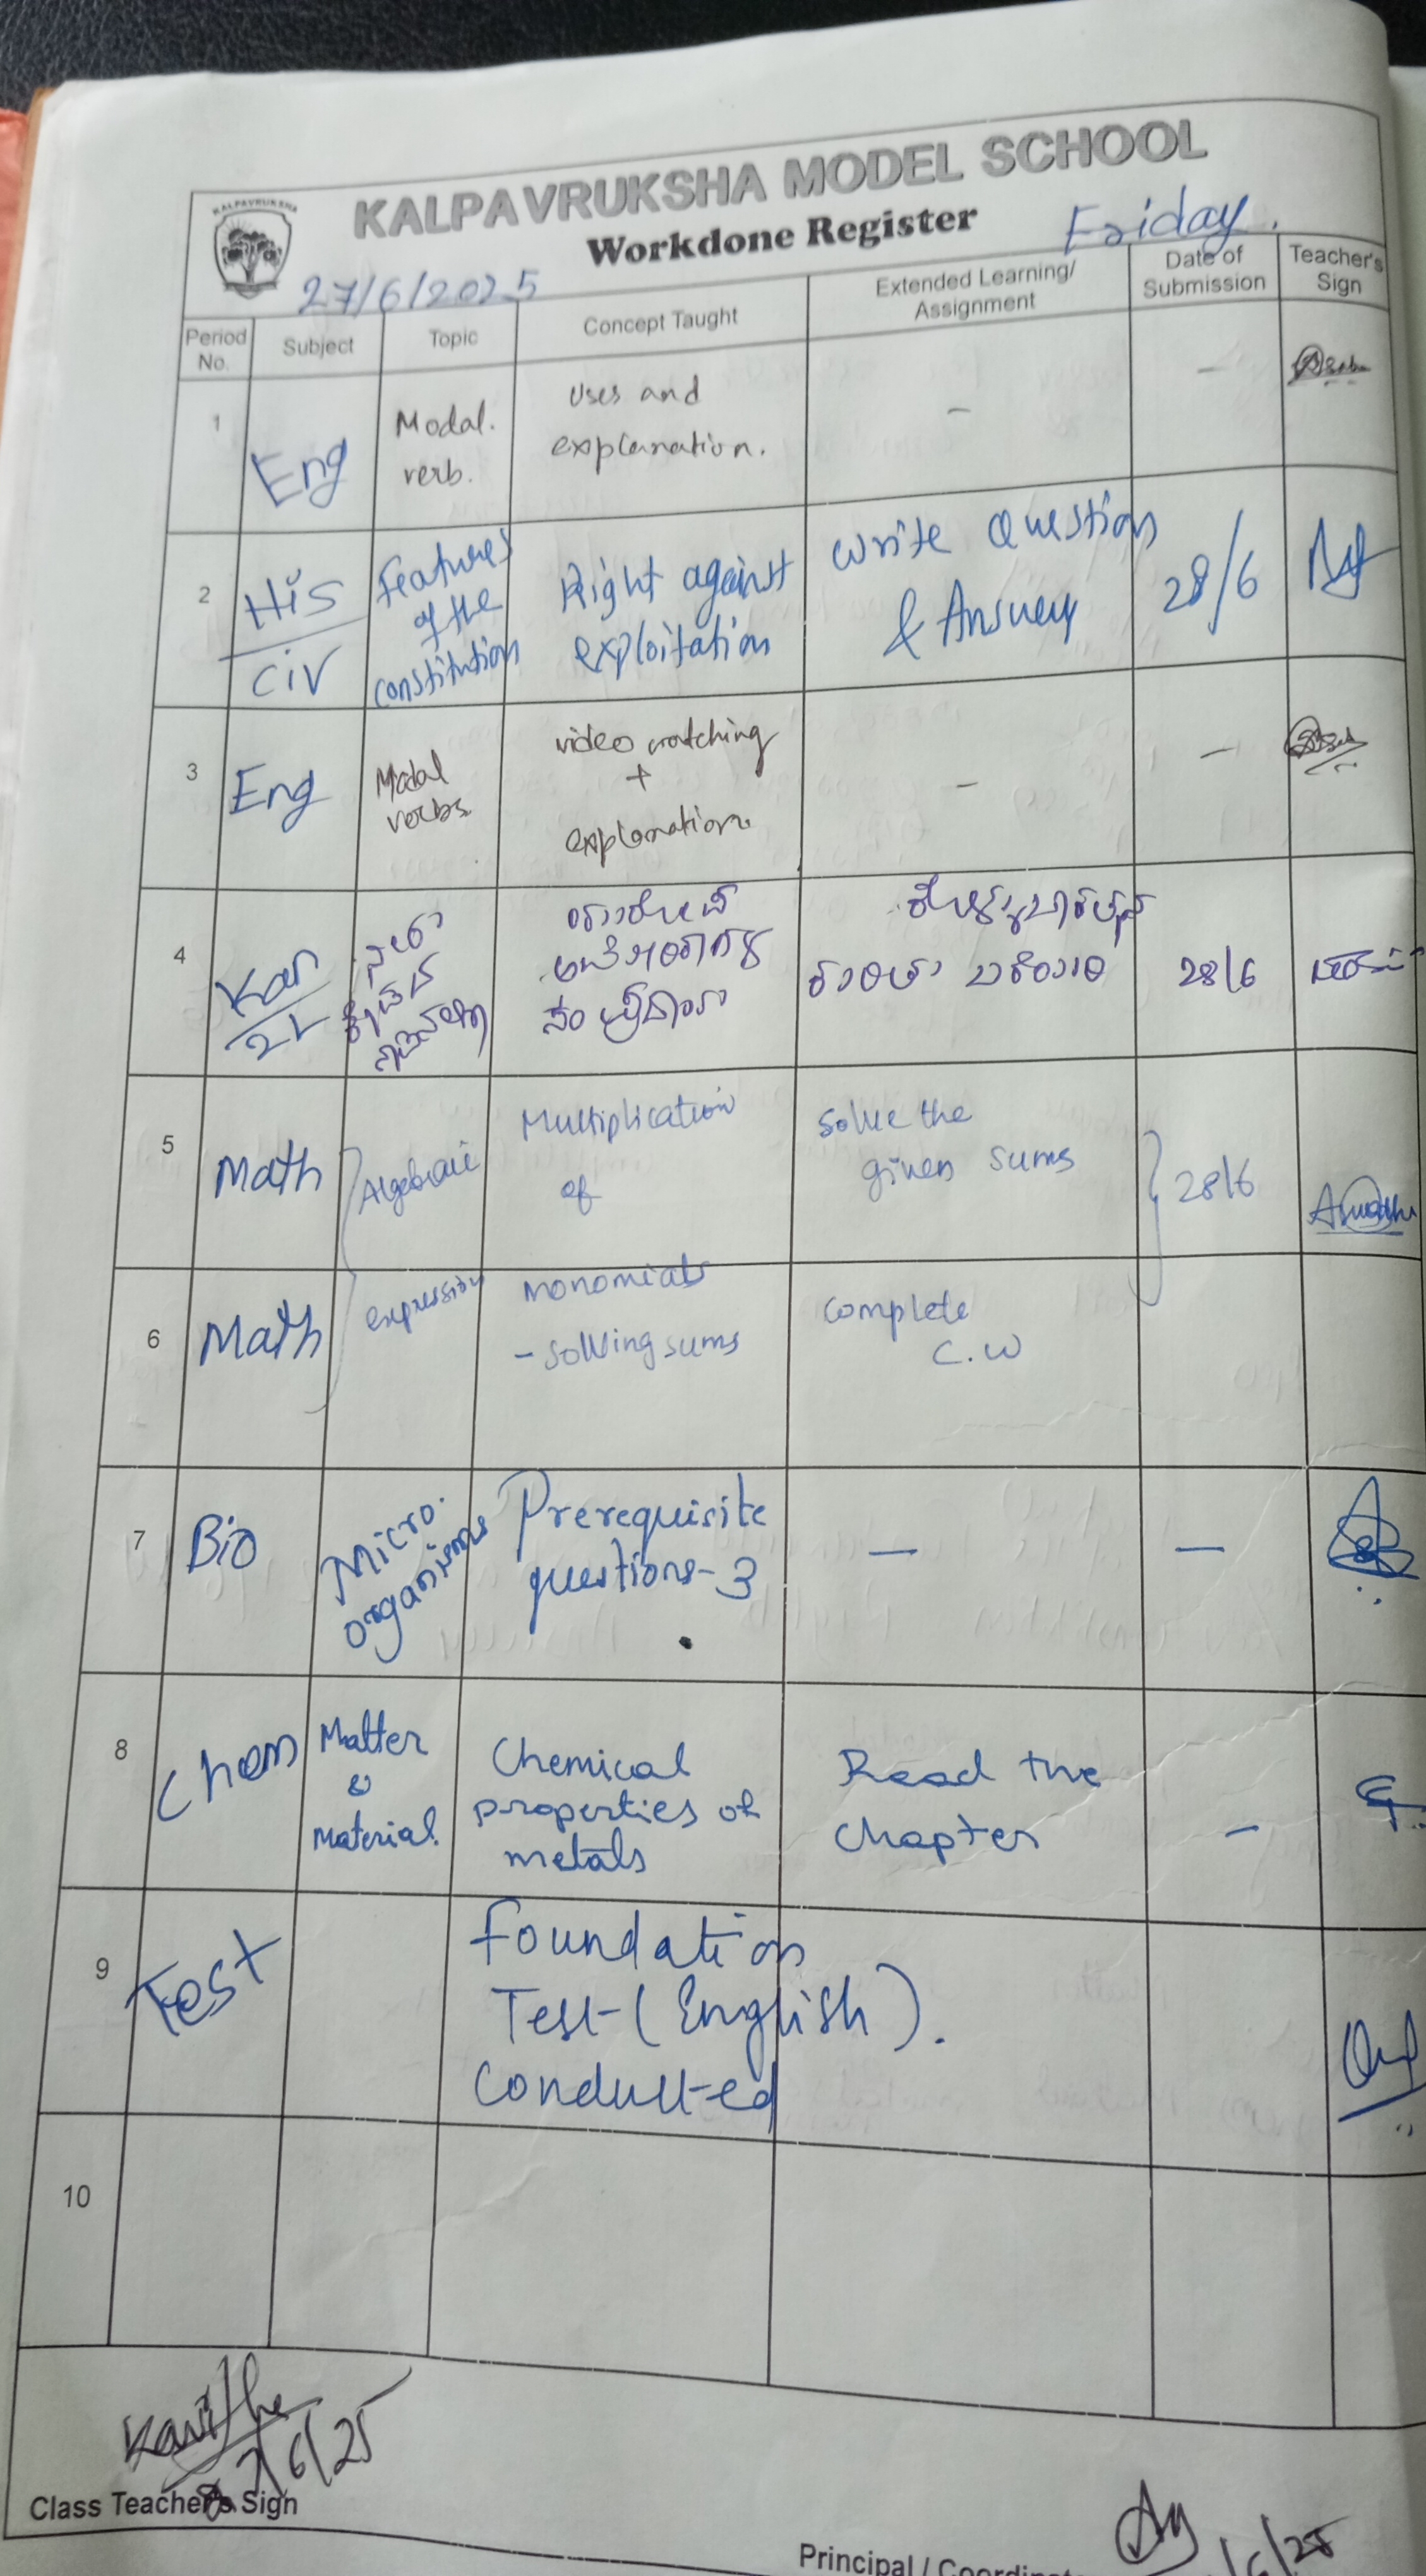 KALPAVRUKSHA
KALPAVRUKSHA MODEL SCHOOL
Workdone Register
Friday.
27/6/2025
Period No.
Subject
Topic
Concept Taught
Extended Learning/ Assignment
Date of Submission
Teacher's Sign
1
Eng
Modal.
verb.
Uses and
explanation.
-
-
2
His
Civ
Features
of the
constitution
Right against
exploitation
Write Question
& Answer
28/6
3
Eng
Modal
verbs
video watching
+
explanation.
-
-
4
Kan
2L
28/6
5
Math
Algebraic
Multiplication
of
Solve the
given sums
28/6
6
Math
expression
monomials
- solving sums
Complete
C.W
7
Bio
Micro
organisms
Prerequisite
questions-3
-
-
8
Chem
Matter
&
Material.
Chemical
properties of
metals
Read the
chapter
-
9
Test
Foundation
Test-(English).
Conducted
10
Kavitha
27/6/25
Class Teacher's Sign
Principal /